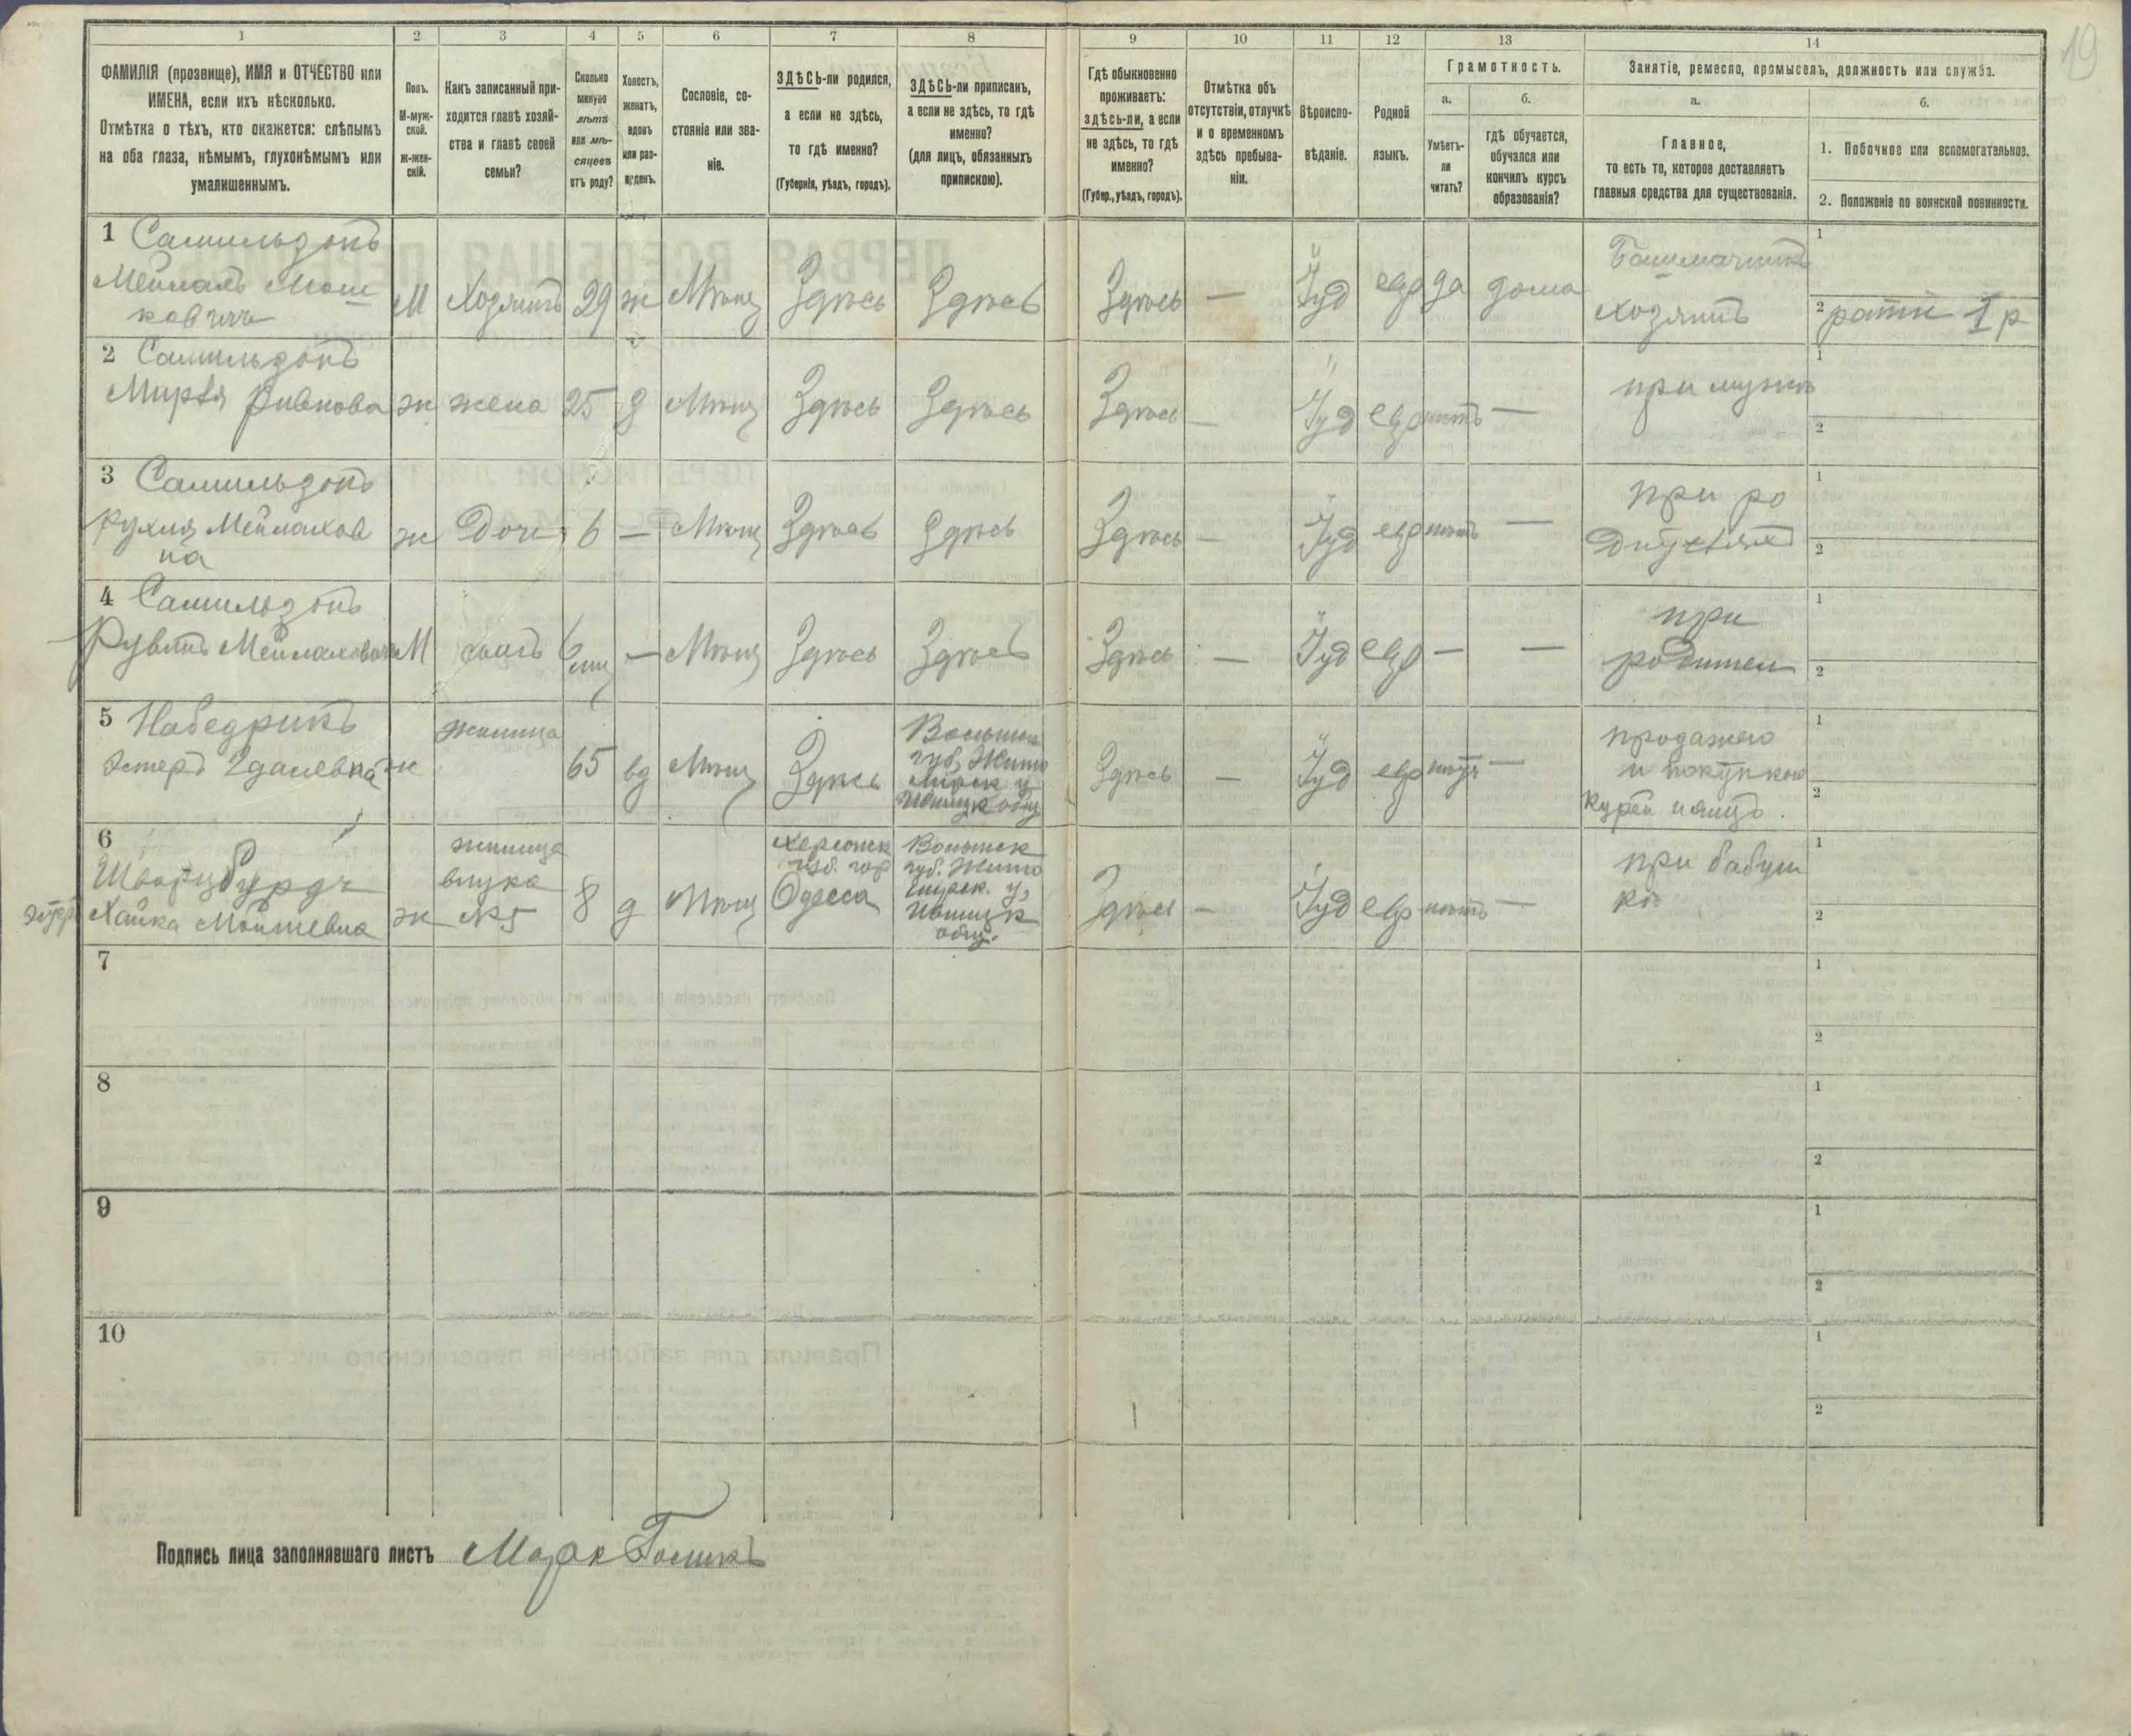 19
1 2 3 4 5 6 7 8 9 10 11 12 13 14
ФАМИЛІЯ (прозвище), ИМЯ и ОТЧЕСТВО или
ИМЕНА, если ихъ нѣсколько.
Отмѣтка о тѣхъ, кто окажется: слѣпымъ
на оба глаза, нѣмымъ, глухонѣмымъ или
умалишеннымъ.
Полъ.
М-муж-
ской.
ж-жен-
скій.
Какъ записанный при-
ходится главѣ хозяй-
ства и главѣ своей
семьи?
Сколько
минуло
лѣтъ
или мѣ-
сяцевъ
отъ роду?
Холостъ,
женатъ,
вдовъ
или раз-
веденъ.
Сословіе, со-
стояніе или зва-
ніе.
ЗДѢСЬ-ли родился,
а если не здѣсь,
то гдѣ именно?
(Губернія, уѣздъ, городъ).
ЗДѢСЬ-ли приписанъ,
а если не здѣсь, то гдѣ
именно?
(для лицъ, обязанныхъ
припискою).
Гдѣ обыкновенно
проживаетъ:
здѣсь-ли, а если
не здѣсь, то гдѣ
именно?
(Губер., уѣздъ, городъ).
Отмѣтка объ
отсутствіи, отлучкѣ
и о временномъ
здѣсь пребыва-
ніи.
Вѣроиспо-
вѣданіе.
Родной
языкъ.
Грамотность.
а.
Умѣетъ-
ли
читать?
б.
гдѣ обучается,
обучался или
кончилъ курсъ
образованія?
Занятіе, ремесло, промыселъ, должность или служба.
а.
Главное,
то есть то, которое доставляетъ
главныя средства для существованія.
б.
1. Побочное или вспомогательное.
2. Положеніе по воинской повинности.
1 Самильзонъ
Меймахъ Мош
ковичъ
М
Хозяинъ
29
ж
Мѣщ
Здѣсь
Здѣсь
Здѣсь
—
Іуд
евр
да
дома
Башмачникъ
хозяинъ
1
2 ратн 1 р
2 Самильзонъ
Мирля Рывнова
ж
жена
25
з
Мѣщ
Здѣсь
Здѣсь
Здѣсь
—
Іуд
евр
нѣтъ
—
при мужѣ
1
2
3 Самильзонъ
Рухля Меймахов
на
ж
Дочь
6
—
Мѣщ
Здѣсь
Здѣсь
Здѣсь
—
Іуд
евр
нѣтъ
—
при ро
дителях
1
2
4 Самильзонъ
Рувинъ Меймахович
М
сынъ
6
мц
—
Мѣщ
Здѣсь
Здѣсь
Здѣсь
—
Іуд
евр
—
—
при
родител
1
2
5 Набедрикъ
Эстеръ Гдалевна
ж
жилица
65
вд
Мѣщ
Здѣсь
Волынск
губ. Жито
мирск у
Ивницк общ
Здѣсь
—
Іуд
евр
нѣтъ
—
продажею
и покупкою
курей и яицъ.
1
2
6
Шварцбурдъ
Хайка Мошневна
ж
жилица
внука
№5
8
д
Мѣщ
Херсонск
губ. гор
Одесса
Волынск
губ. Жито
мирск. у,
Ивницк
общ.
Здѣсь
—
Іуд
евр
нѣтъ
—
при бабуш
кѣ
1
2
7
1
2
8
1
2
9
1
2
10
1
2
Подпись лица заполнявшаго листъ Марк Голикъ